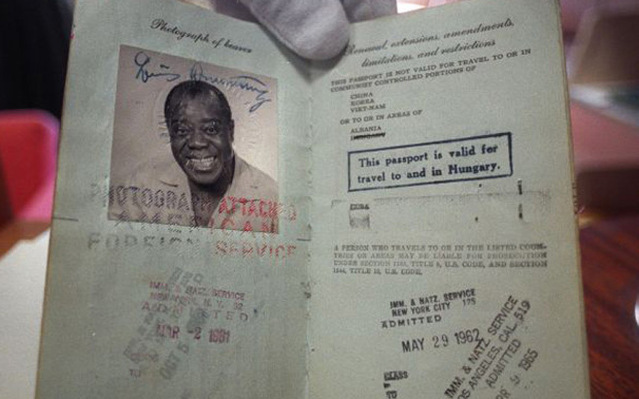 Photograph of bearer
Louis Armstrong
PHOTOGRAPH ATTACHED
AMERICAN
FOREIGN SERVICE
IMM. & NATZ. SERVICE
NEW YORK, N. Y.
ADMITTED
MAR -2 1961
OCT 5
Renewal, extensions, amendments,
limitations, and restrictions
THIS PASSPORT IS NOT VALID FOR TRAVEL TO OR IN
COMMUNIST CONTROLLED PORTIONS OF
CHINA
KOREA
VIET-NAM
OR TO OR IN AREAS OF
ALBANIA
This passport is valid for
travel to and in Hungary.
CUBA
A PERSON WHO TRAVELS TO OR IN THE LISTED COUN-
TRIES OR AREAS MAY BE LIABLE FOR PROSECUTION
UNDER SECTION 1185, TITLE 8, U.S. CODE, AND SECTION
1544, TITLE 18, U.S. CODE.
IMM. & NATZ. SERVICE
NEW YORK CITY 125
ADMITTED
MAY 29 1962
CLASS
TO
IMM. & NATZ. SERVICE
LOS ANGELES, CAL. 519
ADMITTED
1965